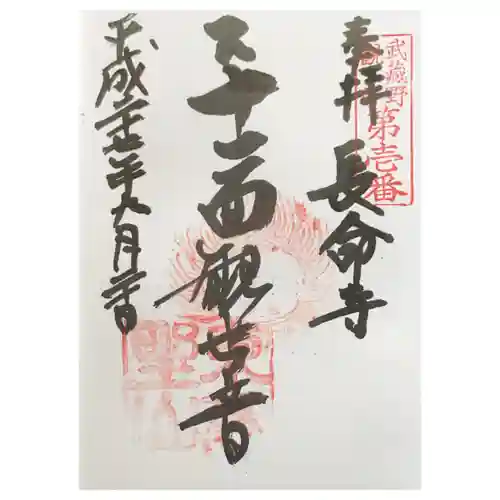 武蔵野
第壱番
奉拝 長命寺
十一面観世音
平成 年九月 日